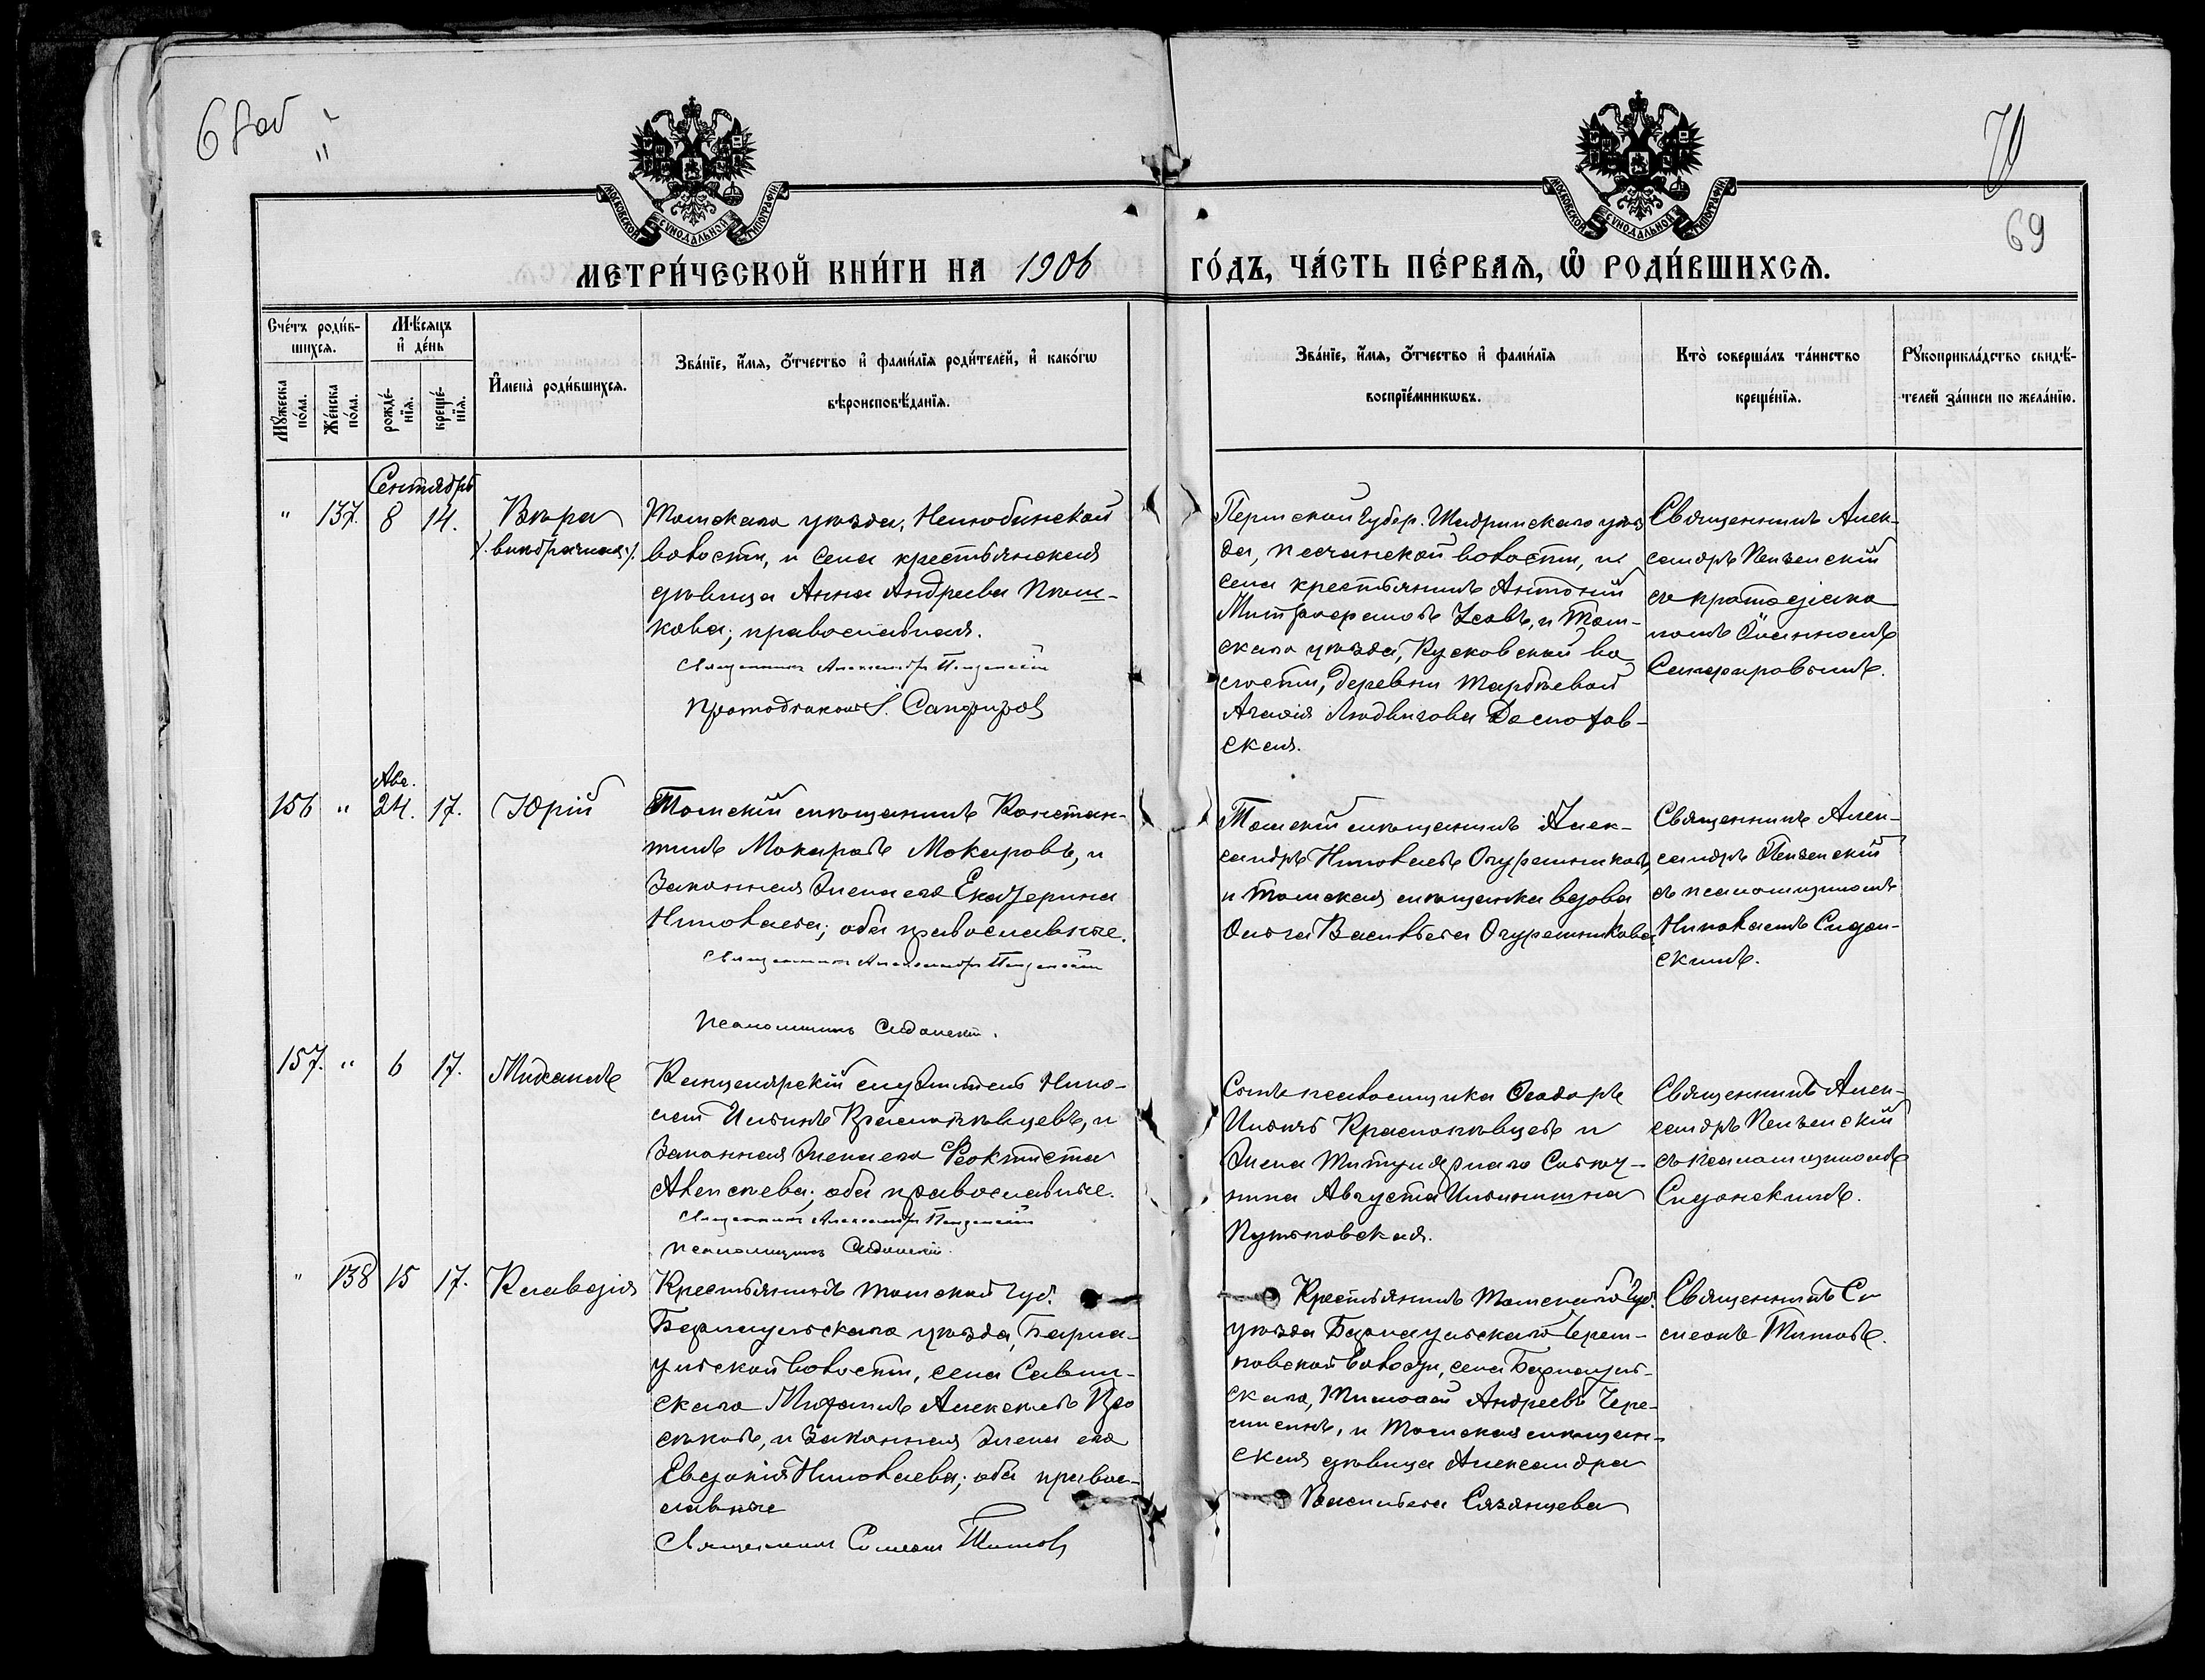 70
69
МОСКОВСКОЙ СѴНОДАЛЬНОЙ ТИПОГРАФІИ
МОСКОВСКОЙ СѴНОДАЛЬНОЙ ТИПОГРАФІИ
МЕТРИ́ЧЕСКОЙ КНИ́ГИ НА 1906
ГО́ДЪ, ЧА́СТЬ ПЕ́РВАѦ, Ѽ РОДИ́ВШИХСѦ.
Сче́тъ роди́в-
шихсѧ.
Мꙋ́жеска по́ла.
Же́нска по́ла.
Мѣ́сѧцъ
и҆ де́нь
рожде́-
нїѧ.
креще́-
нїѧ.
И҆мена̀ роди́вшихсѧ.
Зва́нїе, и҆́мѧ, о҆́тчество и҆ фами́лїѧ роди́телей, и҆ како́гѡ
вѣроисповѣ́данїѧ.
Зва́нїе, и҆́мѧ, о҆́тчество и҆ фами́лїѧ
воспрїе́мникѡвъ.
Кто̀ соверша́лъ та́инство
креще́нїѧ.
Рꙋкоприкла́дство свидѣ́-
телей за́писи по жела́нїю.
Сентябрь
" 137. 8 14.
Вѣра
/. внѣбрачная ./
Томскаго уѣзда, Нелюбинской
волости, и села крестьянская
дѣвица Анна Андреева Пош-
кова; православная.
Священникъ Александръ Пензенскій
Протодіаконъ І. Сапфировъ
Пермской губер. Шадринскаго уѣз
да, Песчанской волости, и
села крестьянинъ Антоній
Митрофановъ Усовъ, и Том-
скаго уѣзда, Кусковской во
лости, деревни Тарбѣевой
Агаѳія Людвигова
ская.
Священникъ Алек-
сандръ Пензенскій
съ протодіако
номъ Іоанномъ
Сапфировымъ.
Авг.
156 " 24. 17.
Юрій
Томскій мѣщанинъ Констан-
тинъ Макаровъ Макаровъ, и
законная жена его Екатерина
Николаева; оба православные.
Священникъ Александръ Пензенскій
Псаломщикъ Сидонскій.
Томскій мѣщанинъ Алек-
сандръ Николаевъ Огурешниковъ,
и томская мѣщанка вдова
Ольга Васильева Огурешникова
Священникъ Алек-
сандръ Пензенскій
съ псаломщикомъ
Николаемъ Сидон-
скимъ.
157. " 6 17.
Михаилъ
Канцелярскій служитель Нико-
лай Ильинъ Краснопѣвцевъ, и
законная жена его Ѳеоктиста
Алексѣева; оба православные.
Священникъ Александръ Пензенскій
Псаломщикъ Сидонскій.
Сынъ псаломщика Ѳеодоръ
Ильинъ Краснопѣвцевъ и
жена Титулярнаго Совѣт-
ника Августа Ильинишна
Священникъ Алек-
сандръ Пензенскій
съ псаломщикомъ
Сидонскимъ.
" 138 15 17.
Клавдія
Крестьянинъ Томской губ.
Барнаульскаго уѣзда, Барна-
ульской волости, села Савин-
скаго Михаилъ Алексѣевъ Про
сѣковъ, и законная жена его
Евдокія Николаева; оба правос-
лавные
Священникъ Симеонъ Титовъ
Крестьянинъ Томской губ.
уѣзда Барнаульскаго
новской волости, села Барнауль-
скаго, Тимоѳей Андреевъ Чере-
, и Томская мѣщан-
ская дѣвица Александра
Васильева Сязянцева
Священникъ Си
меонъ Титовъ.